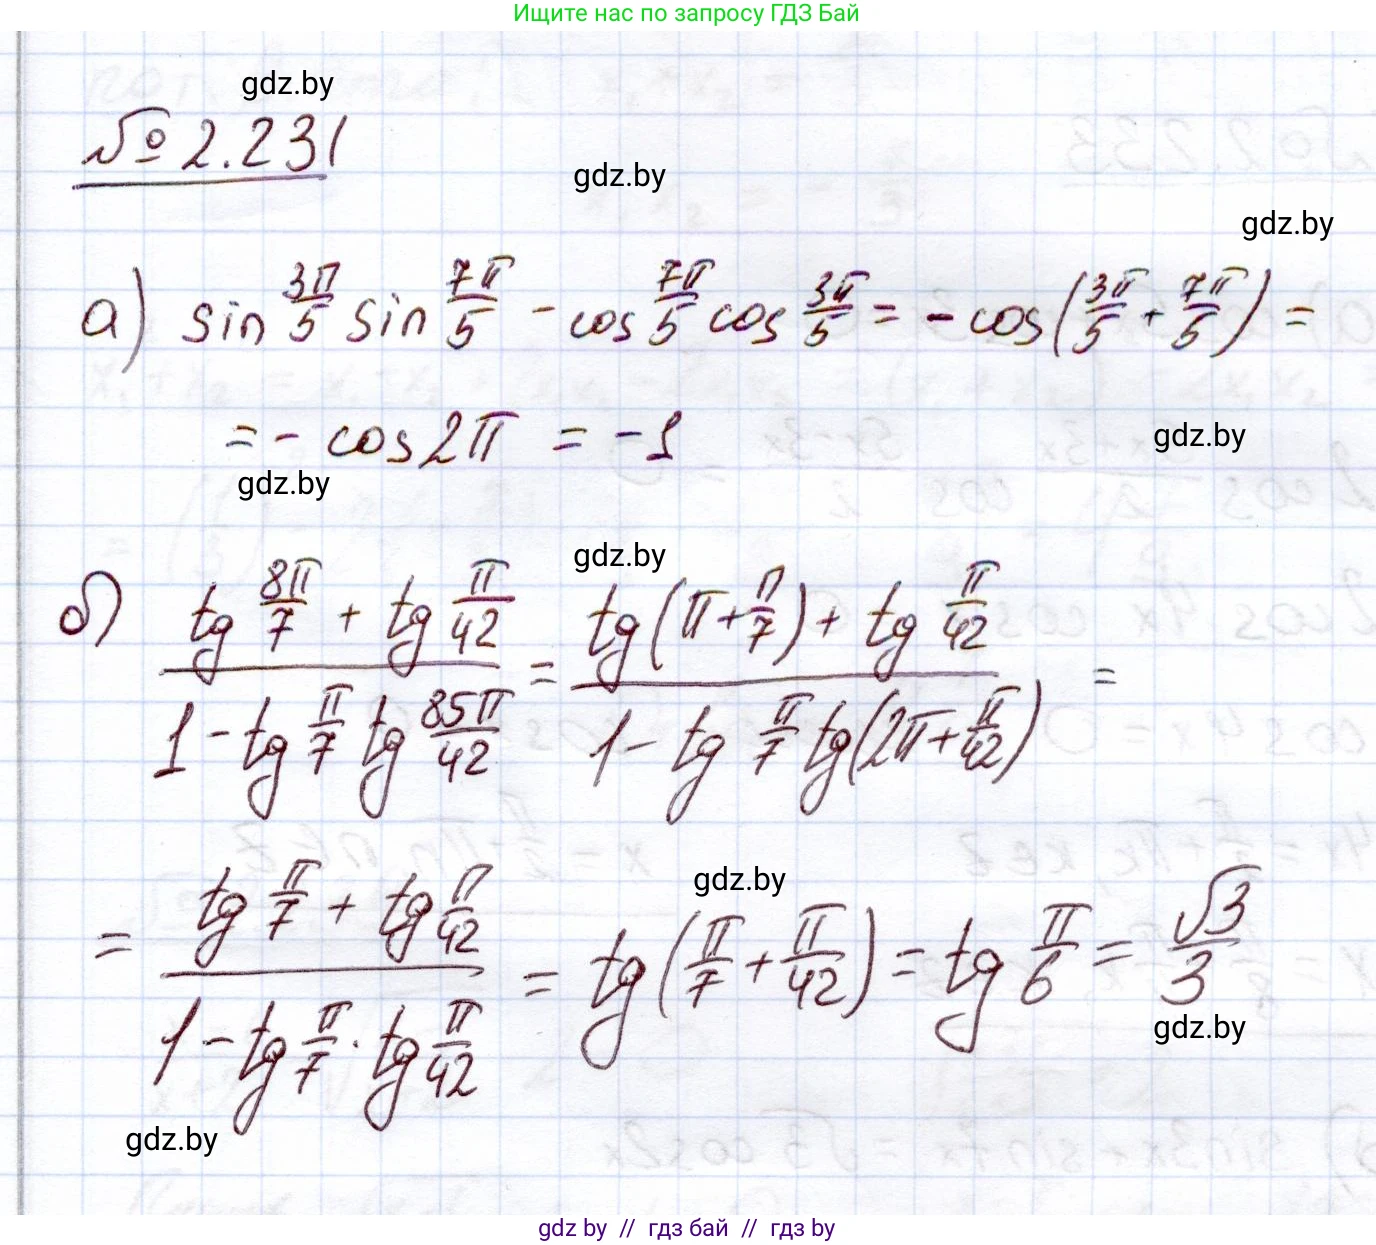 Ищите нас по запросу ГДЗ Бай
gdz.by
№ 2.231
gdz.by
gdz.by
а) sin 3π/5 sin 7π/5 - cos 7π/5 cos 3π/5 = - cos(3π/5 + 7π/5) =
= - cos2π = -1
gdz.by
gdz.by
gdz.by
б) (tg 8π/7 + tg π/42)/(1 - tg π/7 tg 85π/42) = (tg(π+π/7) + tg π/42)/(1 - tg π/7 tg(2π+π/42)) =
gdz.by
= (tg π/7 + tg π/42)/(1 - tg π/7 · tg π/42) = tg(π/7 + π/42) = tg π/6 = √3/3
gdz.by
gdz.by
gdz.by // гдз бай // гдз by